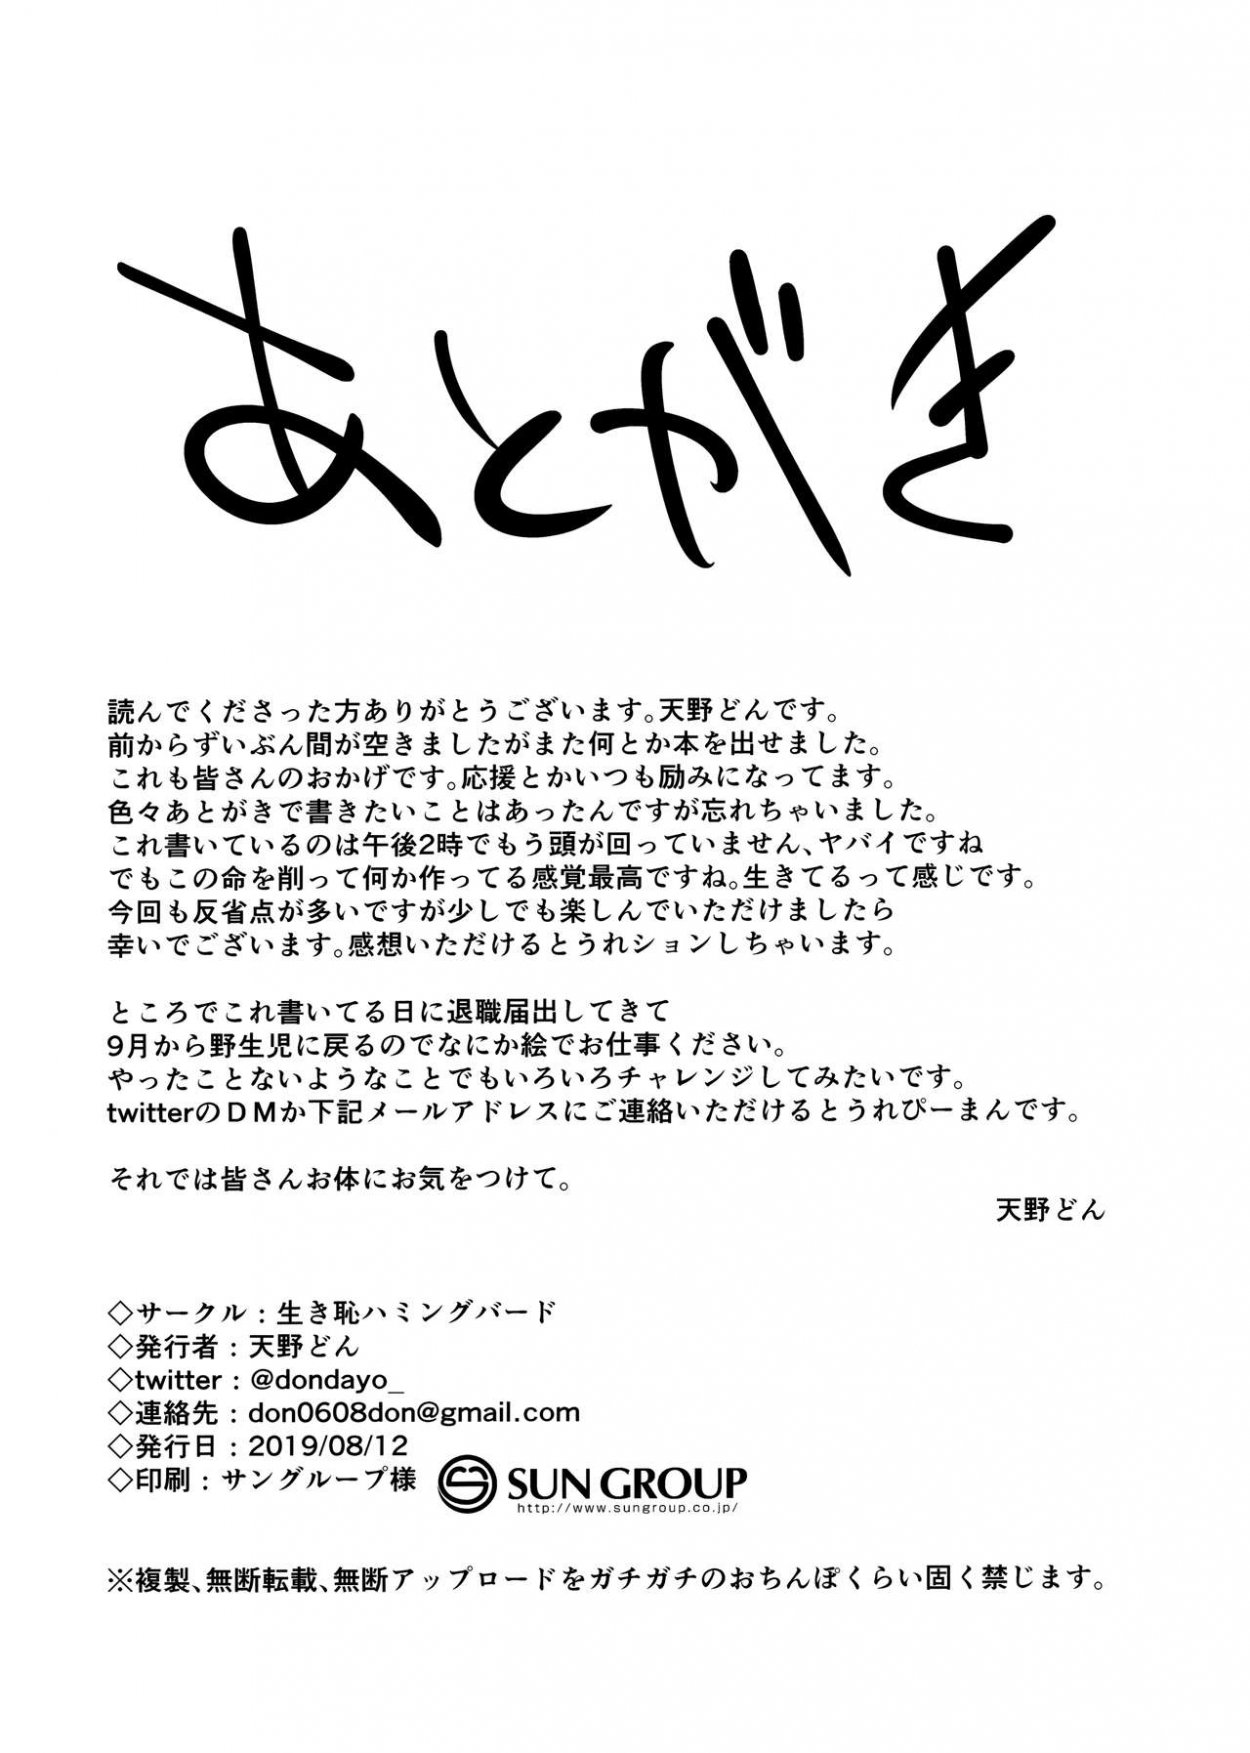 あとがき
読んでくださった方ありがとうございます。天野どんです。
前からずいぶん間が空きましたがまた何とか本を出せました。
これも皆さんのおかげです。応援とかいつも励みになってます。
色々あとがきで書きたいことはあったんですが忘れちゃいました。
これ書いているのは午後2時でもう頭が回っていません、ヤバイですね
でもこの命を削って何か作ってる感覚最高ですね。生きてるって感じです。
今回も反省点が多いですが少しでも楽しんでいただけましたら
幸いでございます。感想いただけるとうれションしちゃいます。
ところでこれ書いてる日に退職届出してきて
9月から野生児に戻るのでなにか絵でお仕事ください。
やったことないようなことでもいろいろチャレンジしてみたいです。
twitterのDMか下記メールアドレスにご連絡いただけるとうれぴーまんです。
それでは皆さんお体にお気をつけて。
天野どん
◇サークル：生き恥ハミングバード
◇発行者：天野どん
◇twitter：@dondayo_
◇連絡先：don0608don@gmail.com
◇発行日：2019/08/12
◇印刷：サングループ様 SUN GROUP
http://www.sungroup.co.jp/
※複製、無断転載、無断アップロードをガチガチのおちんぽくらい固く禁じます。